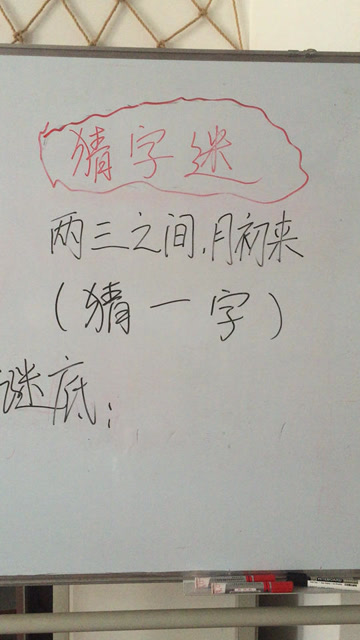 猜字迷
两三之间,月初来
(猜一字)
谜底: